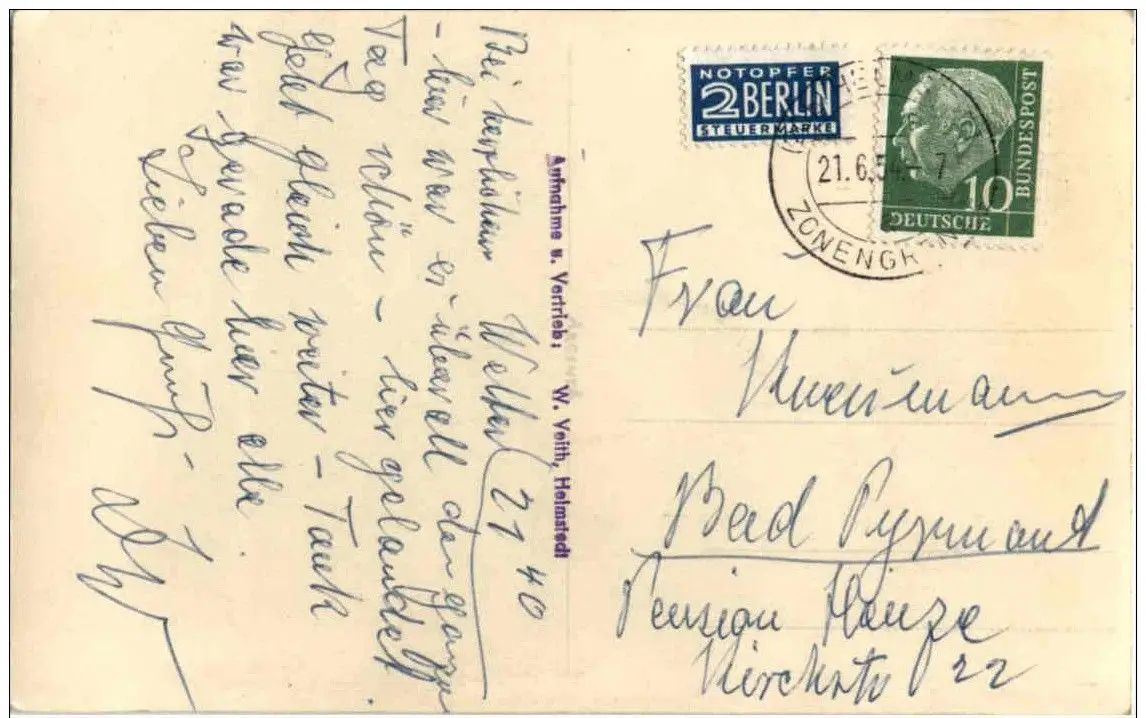 Bei herrlichem Wetter 21 40
- hier war es überall den ganzen
Tag schön - hier gelandet
geht gleich weiter - Tank
war gerade hier alle.
Lieben Gruß -
NOTOPFER
2 BERLIN
STEUERMARKE
DEUTSCHE
BUNDESPOST
10
21.6.54. - 7
ZONENGR
Aufnahme u. Vertrieb: W. Veith, Helmstedt
Frau
Bad Pyrmont
Pension Heinze
Kirchstr 22